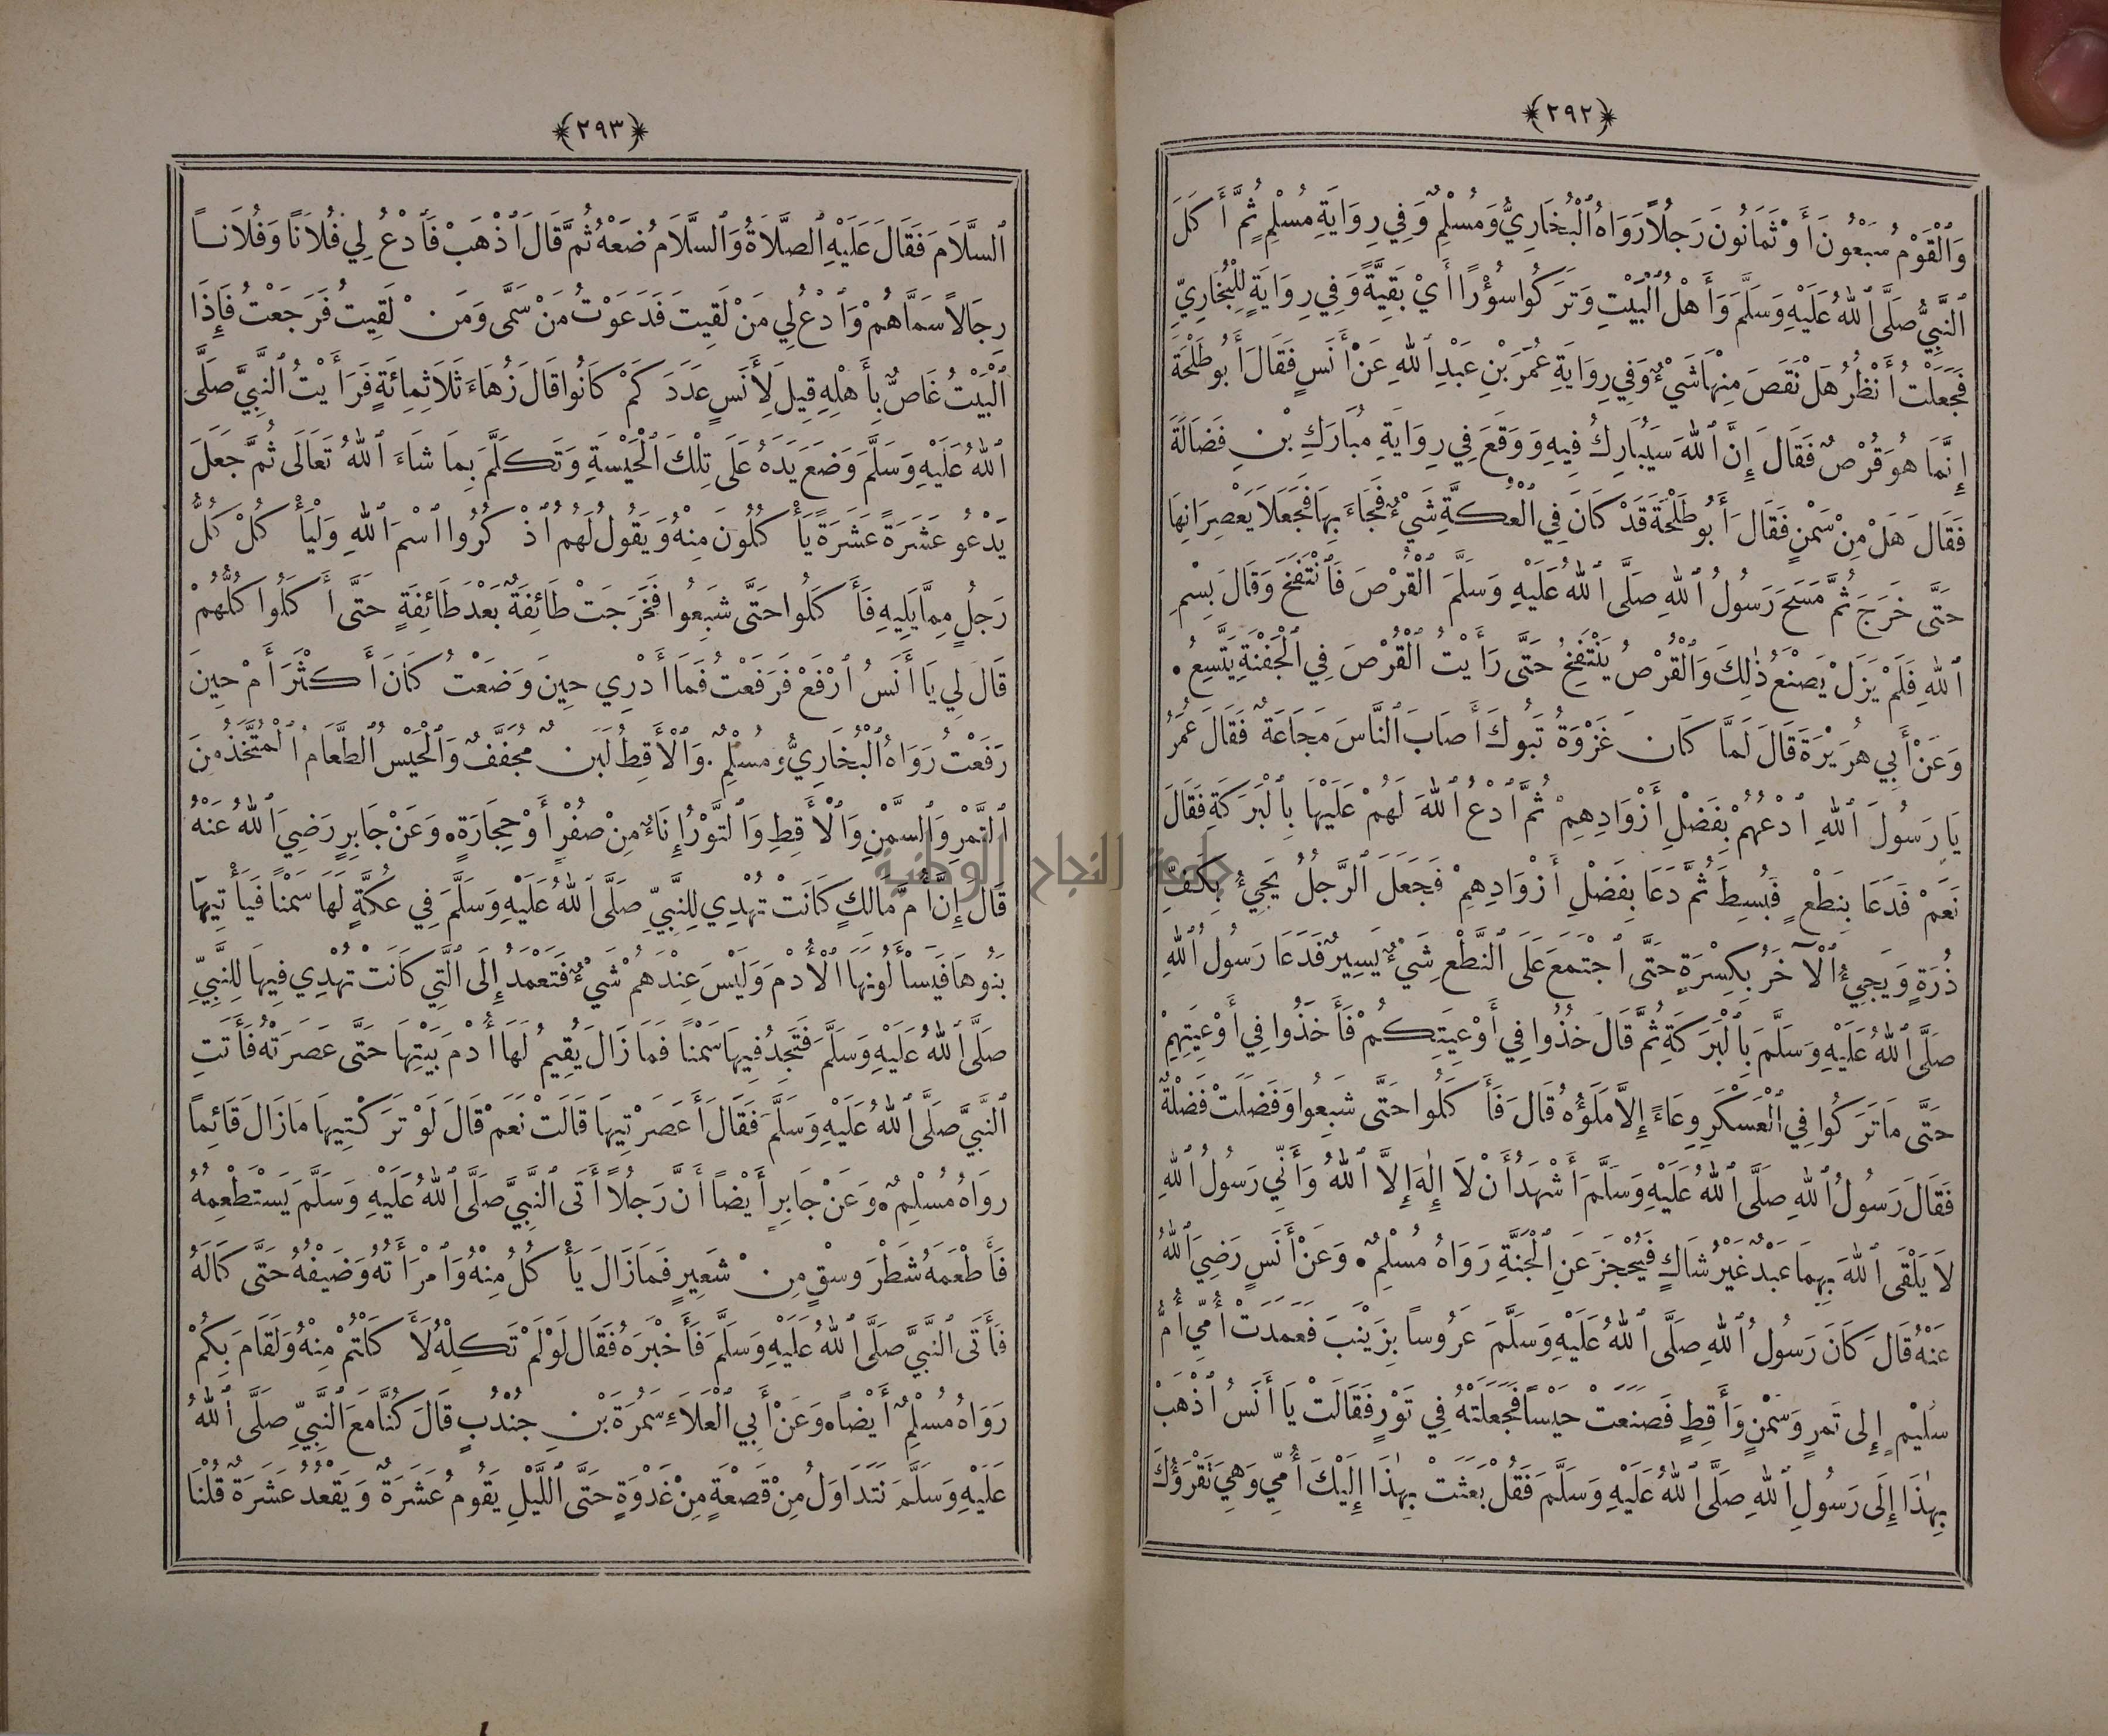 ﴿٢٩٢﴾
وَٱلْقَوْمُ سَبْعُونَ أَوْ ثَمَانُونَ رَجُلًا رَوَاهُ ٱلْبُخَارِيُّ وَمُسْلِمٌ وَفِي رِوَايَةِ مُسْلِمٍ ثُمَّ أَكَلَ
ٱلنَّبِيُّ صَلَّى ٱللهُ عَلَيْهِ وَسَلَّمَ وَأَهْلُ ٱلْبَيْتِ وَتَرَكُوا سُؤْرًا أَيْ بَقِيَّةً وَفِي رِوَايَةٍ لِلْبُخَارِيِّ
فَجَعَلْتُ أَنْظُرُ هَلْ نَقَصَ مِنْهَا شَيْءٌ وَفِي رِوَايَةِ عُمَرَ بْنِ عَبْدِ ٱللهِ عَنْ أَنَسٍ فَقَالَ أَبُو طَلْحَةَ
إِنَّمَا هُوَ قُرْصٌ فَقَالَ إِنَّ ٱللهَ سَيُبَارِكُ فِيهِ وَوَقَعَ فِي رِوَايَةِ مُبَارَكِ بْنِ فَضَالَةَ
فَقَالَ هَلْ مِنْ سَمْنٍ فَقَالَ أَبُو طَلْحَةَ قَدْ كَانَ فِي ٱلْعُكَّةِ شَيْءٌ فَجَاءَ بِهَا فَجَعَلَا يَعْصِرَانِهَا
حَتَّى خَرَجَ ثُمَّ مَسَحَ رَسُولُ ٱللهِ صَلَّى ٱللهُ عَلَيْهِ وَسَلَّمَ ٱلْقُرْصَ فَٱنْتَفَخَ وَقَالَ بِسْمِ
ٱللهِ فَلَمْ يَزَلْ يَصْنَعُ ذٰلِكَ وَٱلْقُرْصُ يَنْتَفِخُ حَتَّى رَأَيْتُ ٱلْقُرْصَ فِي ٱلْجَفْنَةِ يَتَّسِعُ .
وَعَنْ أَبِي هُرَيْرَةَ قَالَ لَمَّا كَانَ غَزْوَةُ تَبُوكَ أَصَابَ ٱلنَّاسَ مَجَاعَةٌ فَقَالَ عُمَرُ
يَا رَسُولَ ٱللهِ ٱدْعُهُمْ بِفَضْلِ أَزْوَادِهِمْ ثُمَّ ٱدْعُ ٱللهَ لَهُمْ عَلَيْهَا بِٱلْبَرَكَةِ فَقَالَ
نَعَمْ فَدَعَا بِنَطْعٍ فَبُسِطَ ثُمَّ دَعَا بِفَضْلِ أَزْوَادِهِمْ فَجَعَلَ ٱلرَّجُلُ يَجِيءُ بِكَفِّ
ذُرَةٍ وَيَجِيءُ ٱلْآخَرُ بِكِسْرَةٍ حَتَّى ٱجْتَمَعَ عَلَى ٱلنَّطْعِ شَيْءٌ يَسِيرٌ فَدَعَا رَسُولُ ٱللهِ
صَلَّى ٱللهُ عَلَيْهِ وَسَلَّمَ بِٱلْبَرَكَةِ ثُمَّ قَالَ خُذُوا فِي أَوْعِيَتِكُمْ فَأَخَذُوا فِي أَوْعِيَتِهِمْ
حَتَّى مَا تَرَكُوا فِي ٱلْعَسْكَرِ وِعَاءً إِلَّا مَلَؤُهُ قَالَ فَأَكَلُوا حَتَّى شَبِعُوا وَفَضَلَتْ فَضْلَةٌ
فَقَالَ رَسُولُ ٱللهِ صَلَّى ٱللهُ عَلَيْهِ وَسَلَّمَ أَشْهَدُ أَنْ لَا إِلٰهَ إِلَّا ٱللهُ وَأَنِّي رَسُولُ ٱللهِ
لَا يَلْقَى ٱللهَ بِهِمَا عَبْدٌ غَيْرُ شَاكٍّ فَيُحْجَزَ عَنِ ٱلْجَنَّةِ رَوَاهُ مُسْلِمٌ . وَعَنْ أَنَسٍ رَضِيَ ٱللهُ
عَنْهُ قَالَ كَانَ رَسُولُ ٱللهِ صَلَّى ٱللهُ عَلَيْهِ وَسَلَّمَ عَرُوسًا بِزَيْنَبَ فَعَمَدَتْ أُمِّي أُمُّ
سُلَيْمٍ إِلَى تَمْرٍ وَسَمْنٍ وَأَقِطٍ فَصَنَعَتْ حَيْسًا فَجَعَلَتْهُ فِي تَوْرٍ فَقَالَتْ يَا أَنَسُ ٱذْهَبْ
بِهٰذَا إِلَى رَسُولِ ٱللهِ صَلَّى ٱللهُ عَلَيْهِ وَسَلَّمَ فَقُلْ بَعَثَتْ بِهٰذَا إِلَيْكَ أُمِّي وَهِيَ تَقْرَؤُكَ
﴿٢٩٣﴾
ٱلسَّلَامَ فَقَالَ عَلَيْهِ ٱلصَّلَاةُ وَٱلسَّلَامُ ضَعْهُ ثُمَّ قَالَ ٱذْهَبْ فَٱدْعُ لِي فُلَانًا وَفُلَانًا
رِجَالًا سَمَّاهُمْ وَٱدْعُ لِي مَنْ لَقِيتَ فَدَعَوْتُ مَنْ سَمَّى وَمَنْ لَقِيتُ فَرَجَعْتُ فَإِذَا
ٱلْبَيْتُ غَاصٌّ بِأَهْلِهِ قِيلَ لِأَنَسٍ عَدَدَ كَمْ كَانُوا قَالَ زُهَاءَ ثَلَاثِمِائَةٍ فَرَأَيْتُ ٱلنَّبِيَّ صَلَّى
ٱللهُ عَلَيْهِ وَسَلَّمَ وَضَعَ يَدَهُ عَلَى تِلْكَ ٱلْحَيْسَةِ وَتَكَلَّمَ بِمَا شَاءَ ٱللهُ تَعَالَى ثُمَّ جَعَلَ
يَدْعُو عَشَرَةً عَشَرَةً يَأْكُلُونَ مِنْهُ وَيَقُولُ لَهُمُ ٱذْكُرُوا ٱسْمَ ٱللهِ وَلْيَأْكُلْ كُلُّ
رَجُلٍ مِمَّا يَلِيهِ فَأَكَلُوا حَتَّى شَبِعُوا فَخَرَجَتْ طَائِفَةٌ بَعْدَ طَائِفَةٍ حَتَّى أَكَلُوا كُلُّهُمْ
قَالَ لِي يَا أَنَسُ ٱرْفَعْ فَرَفَعْتُ فَمَا أَدْرِي حِينَ وَضَعْتُ كَانَ أَكْثَرَ أَمْ حِينَ
رَفَعْتُ رَوَاهُ ٱلْبُخَارِيُّ وَمُسْلِمٌ . وَٱلْأَقِطُ لَبَنٌ مُجَفَّفٌ وَٱلْحَيْسُ ٱلطَّعَامُ ٱلْمُتَّخَذُ مِنَ
ٱلتَّمْرِ وَٱلسَّمْنِ وَٱلْأَقِطِ وَٱلتَّوْرُ إِنَاءٌ مِنْ صُفْرٍ أَوْ حِجَارَةٍ . وَعَنْ جَابِرٍ رَضِيَ ٱللهُ عَنْهُ
قَالَ إِنَّ أُمَّ مَالِكٍ كَانَتْ تُهْدِي لِلنَّبِيِّ صَلَّى ٱللهُ عَلَيْهِ وَسَلَّمَ فِي عُكَّةٍ لَهَا سَمْنًا فَيَأْتِيهَا
بَنُوهَا فَيَسْأَلُونَهَا ٱلْأُدْمَ وَلَيْسَ عِنْدَهُمْ شَيْءٌ فَتَعْمَدُ إِلَى ٱلَّتِي كَانَتْ تُهْدِي فِيهَا لِلنَّبِيِّ
صَلَّى ٱللهُ عَلَيْهِ وَسَلَّمَ فَتَجِدُ فِيهَا سَمْنًا فَمَا زَالَ يُقِيمُ لَهَا أُدْمَ بَيْتِهَا حَتَّى عَصَرَتْهُ فَأَتَتِ
ٱلنَّبِيَّ صَلَّى ٱللهُ عَلَيْهِ وَسَلَّمَ فَقَالَ أَعَصَرْتِيهَا قَالَتْ نَعَمْ قَالَ لَوْ تَرَكْتِيهَا مَا زَالَ قَائِمًا
رَوَاهُ مُسْلِمٌ . وَعَنْ جَابِرٍ أَيْضًا أَنَّ رَجُلًا أَتَى ٱلنَّبِيَّ صَلَّى ٱللهُ عَلَيْهِ وَسَلَّمَ يَسْتَطْعِمُهُ
فَأَطْعَمَهُ شَطْرَ وَسْقٍ مِنْ شَعِيرٍ فَمَا زَالَ يَأْكُلُ مِنْهُ وَٱمْرَأَتُهُ وَضَيْفُهُ حَتَّى كَالَهُ
فَأَتَى ٱلنَّبِيَّ صَلَّى ٱللهُ عَلَيْهِ وَسَلَّمَ فَأَخْبَرَهُ فَقَالَ لَوْ لَمْ تَكِلْهُ لَأَكَلْتُمْ مِنْهُ وَلَقَامَ بِكُمْ
رَوَاهُ مُسْلِمٌ أَيْضًا . وَعَنْ أَبِي ٱلْعَلَاءِ سَمُرَةَ بْنِ جُنْدُبٍ قَالَ كُنَّا مَعَ ٱلنَّبِيِّ صَلَّى ٱللهُ
عَلَيْهِ وَسَلَّمَ نَتَدَاوَلُ مِنْ قَصْعَةٍ مِنْ غَدْوَةٍ حَتَّى ٱللَّيْلِ يَقُومُ عَشَرَةٌ وَيَقْعُدُ عَشَرَةٌ قُلْنَا
جامعة النجاح الوطنية